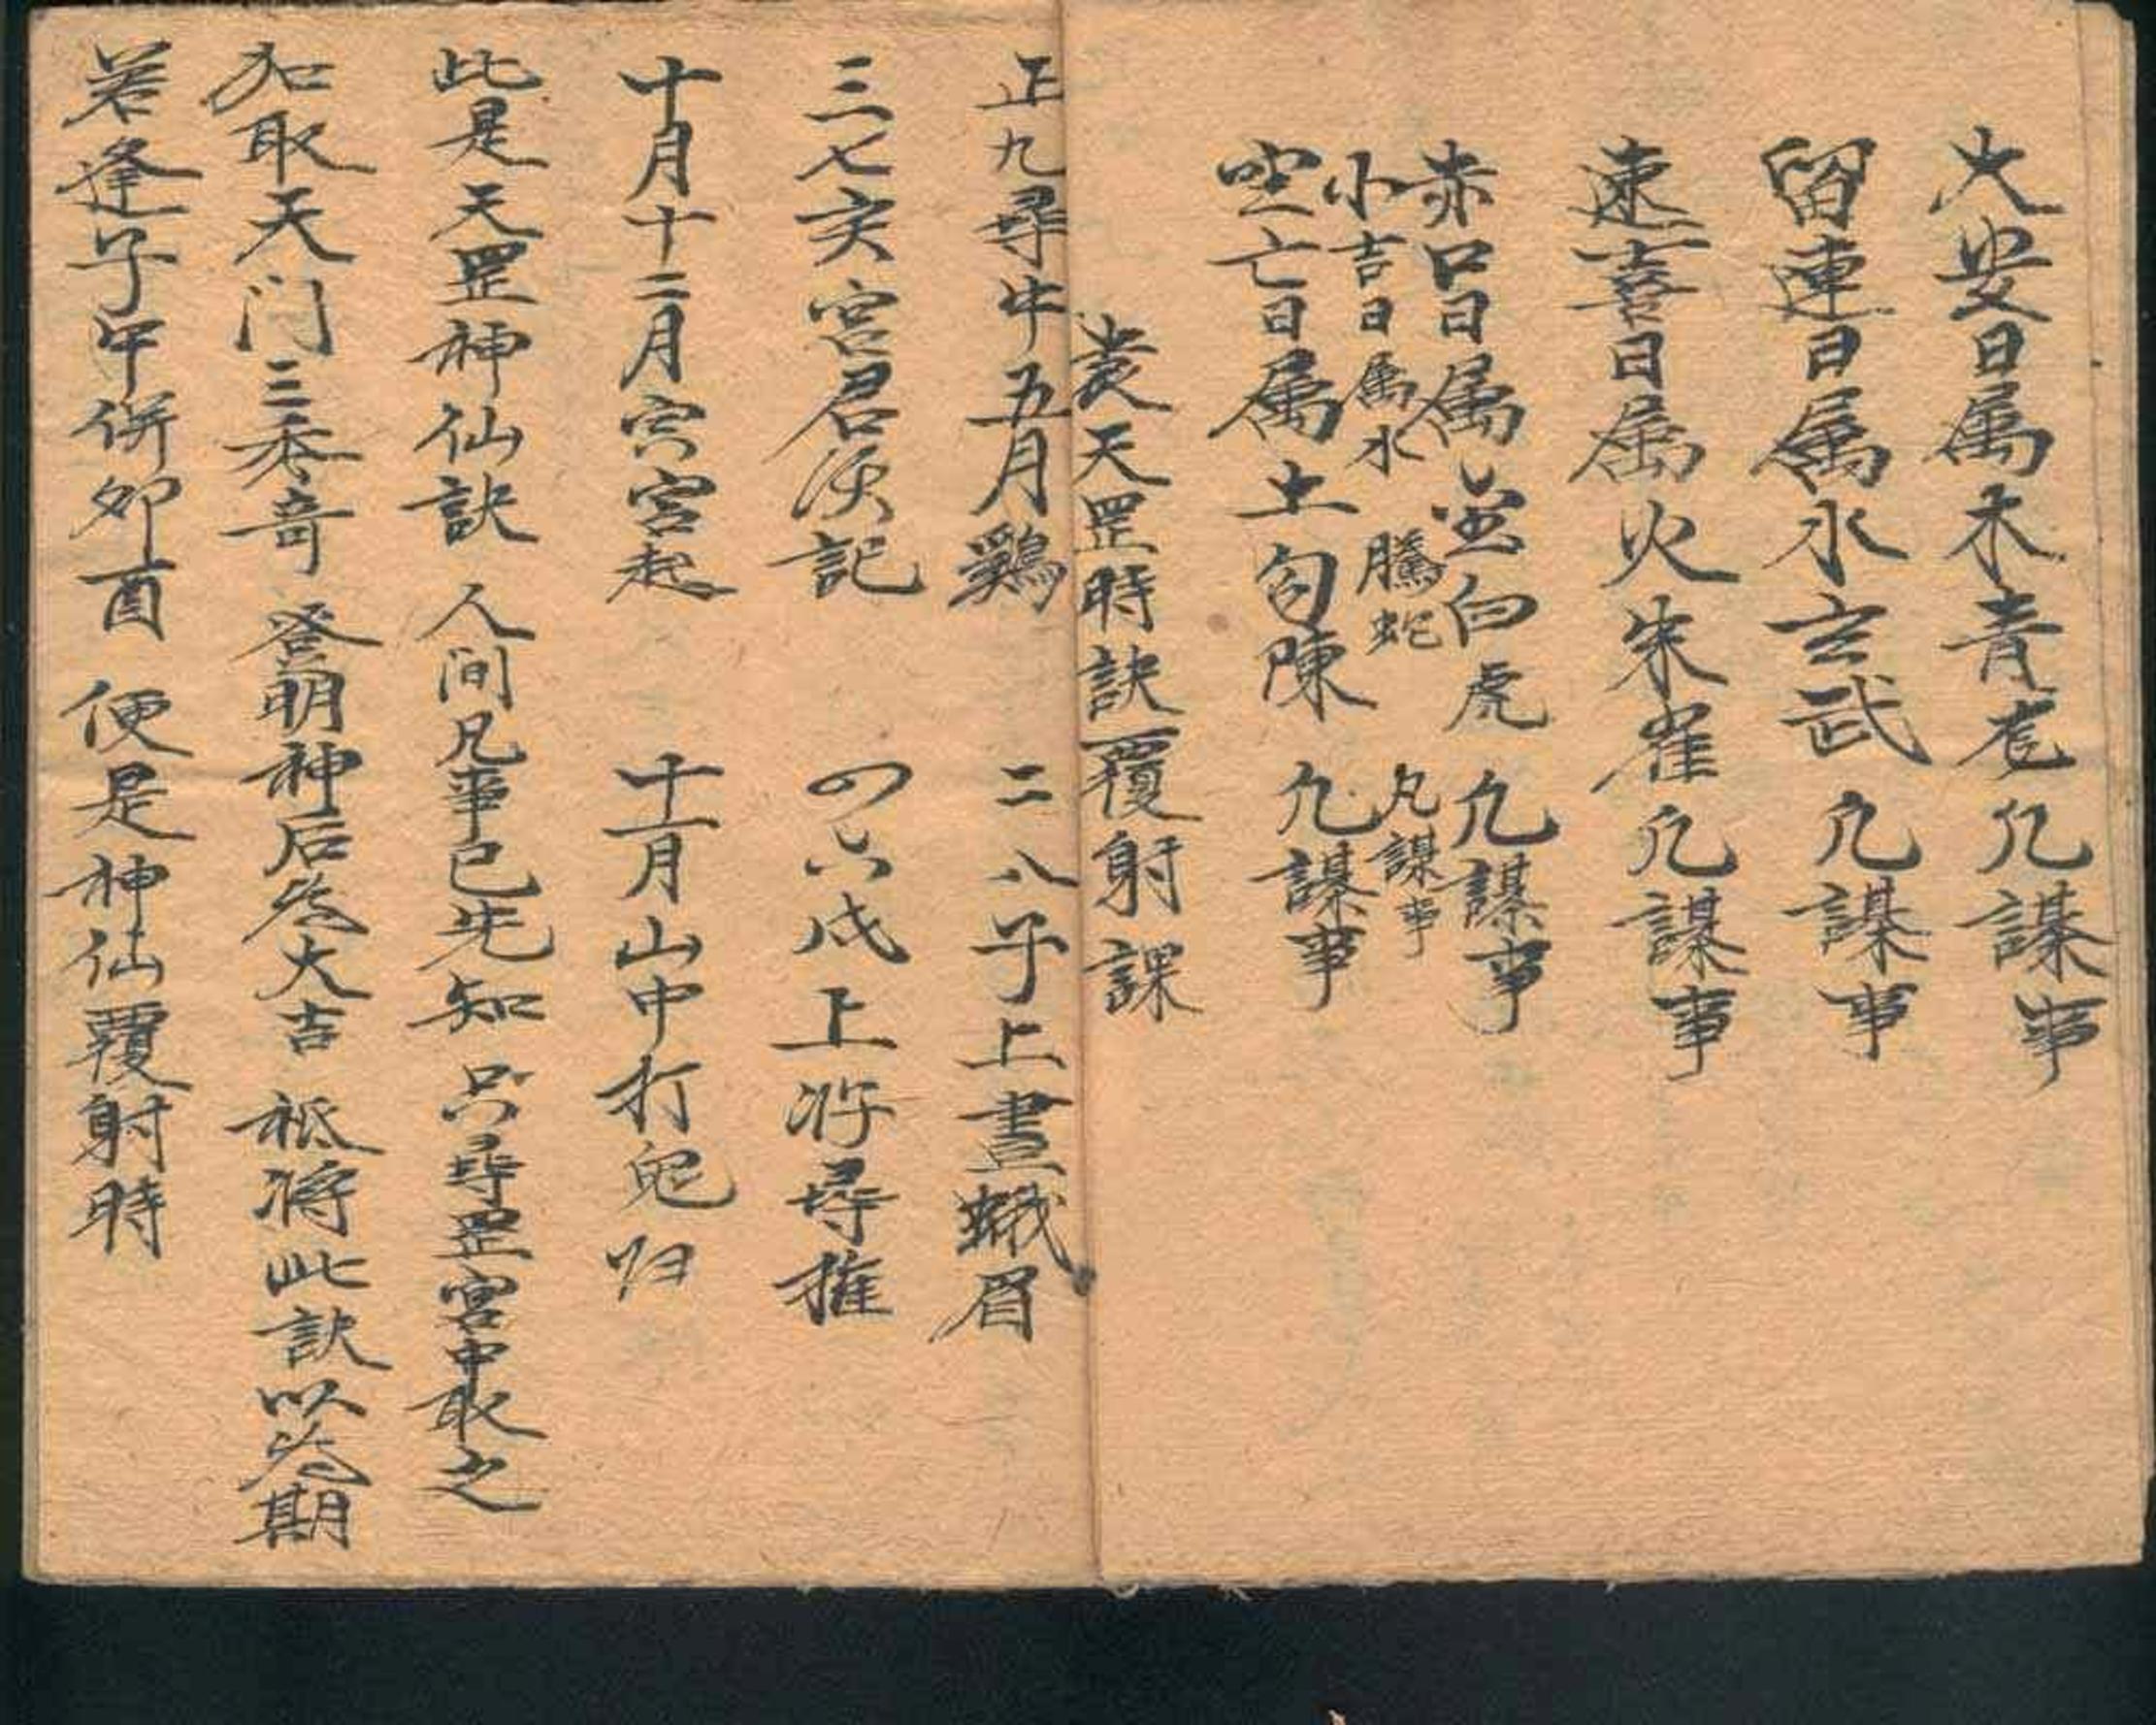 大安日属木青龙凡謀事
留連日属水玄武凡謀事
速喜日属火朱雀凡謀事
赤口日属金白虎凡謀事
小吉日属水騰蛇凡謀事
空亡日属土勾陳凡謀事
天罡時訣覆射課
正九尋牛五月鷄 二八子上畫蛾眉
三七亥宮君須記 四六戌上将尋推
十月十二月宫起 十一月山中打兎归
此是天罡神仙訣 人间凡事已先知 只尋罡宮中取之
加取天门三奇 登明神后為大吉 祗将此訣以為期
若逢子午併卯酉 便是神仙覆射時